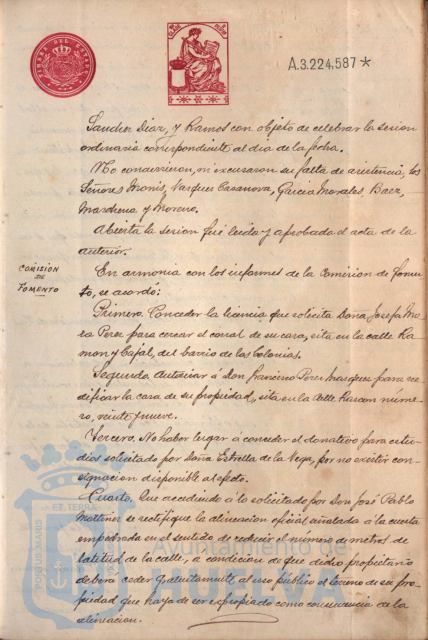 A.3.224.587*
Sanchez Diaz, y Ramos con objeto de celebrar la sesion
ordinaria correspondiente al dia de la fecha.
No concurrieron, ni escusaron su falta de asistencia, los
Señores Monis, Vazquez Casanova, Garcia Morales, Baez,
Marchena y Moreno.
Abierta la sesion fué leida y aprobada el acta de la
anterior.
COMISION
DE
FOMENTO
En armonia con los informes de la Comision de Fomen-
to, se acordó:
Primero. Conceder la licencia que solicita Doña Josefa Mo
Perez para cercar el corral de su casa, sita en la calle Ra-
mon y Cajal, del barrio de las Colonias.
Segundo. Autorizar á Don Francisco Perez Marquez para re-
dificar la casa de su propiedad, sita en la calle Rascon núme-
ro, veinte y nueve.
Tercero. No haber lugar á conceder el donativo para estu-
dios solicitado por Doña Estrella de la Vega, por no existir con-
signacion disponible al efecto.
Cuarto. Que accediendo á lo solicitado por Don José Pablo
Martinez se rectifique la alineacion oficial á la cuesta
empedrada en el sentido de reducir el número de metros de
latitud de la calle, á condicion de que dicho propietario
debera ceder gratuitamente al uso público el terreno de su pro-
piedad que haya de ser expropiado como consecuencia de la
alineacion.
PORTUS MARIS
ET TERRÆ
Ayuntamiento de
HUELVA